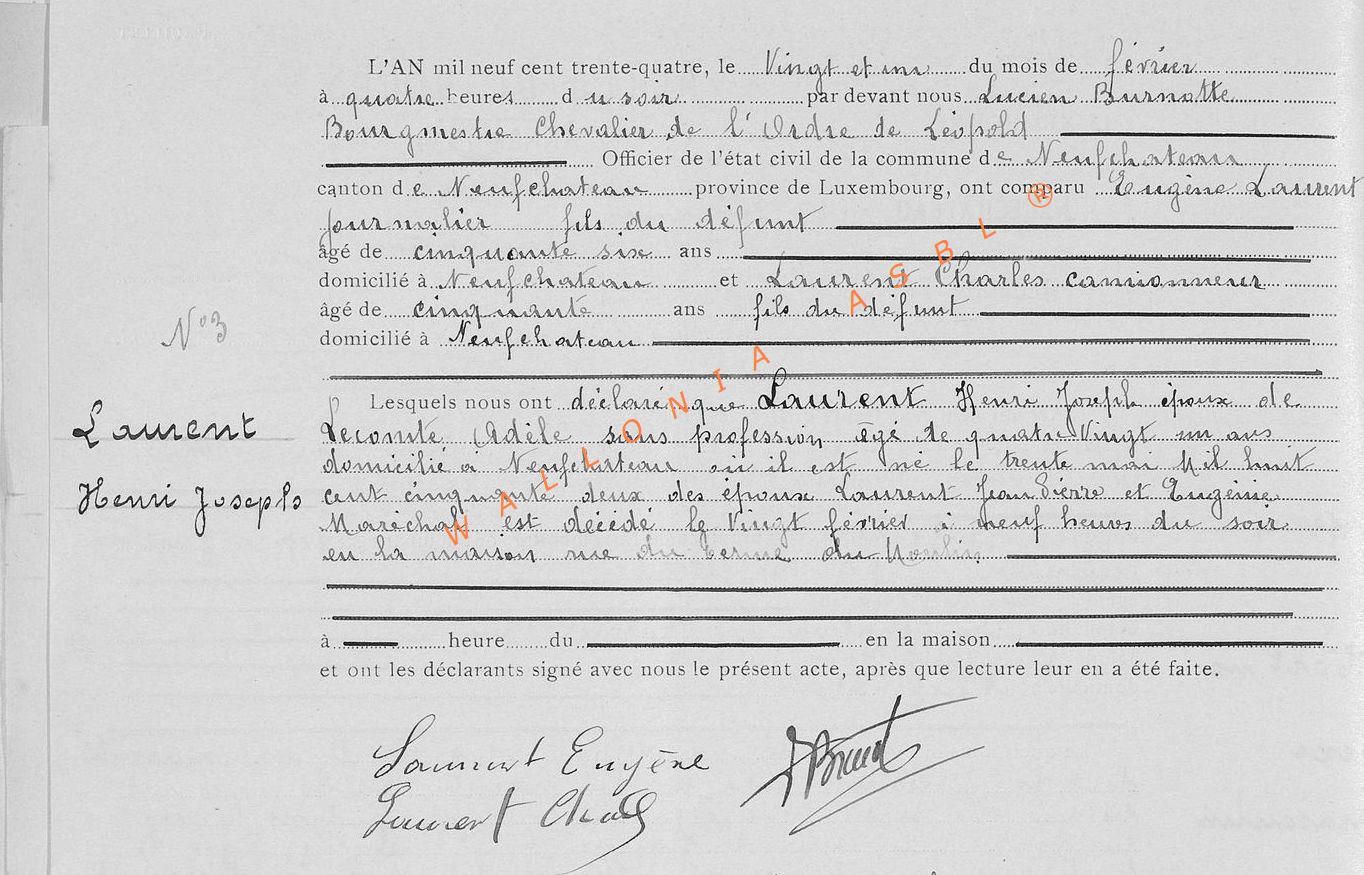 L'AN mil neuf cent trente-quatre, le Vingt et un du mois de février
à quatre heures du soir par devant nous Lucien Burnotte
Bourgmestre Chevalier de l'Ordre de Léopold
Officier de l'état civil de la commune de Neufchateau
canton de Neufchateau province de Luxembourg, ont comparu Eugène Laurent
journalier fils du défunt
âgé de cinquante six ans
domicilié à Neufchateau et Laurent Charles camionneur
âgé de cinquante ans fils du défunt
N° 3
domicilié à Neufchateau
Lesquels nous ont déclaré que Laurent Henri Joseph époux de
Laurent
Lecomte Adèle sans profession âgé de quatre Vingt un ans
domicilié à Neufchateau où il est né le trente mai Mil huit
Henri Joseph
cent cinquante deux des époux Laurent Jean Pierre et Eugénie
Maréchal est décédé le Vingt février à neuf heures du soir
en la maison rue du Terme du Moulin
à heure du en la maison
et ont les déclarants signé avec nous le présent acte, après que lecture leur en a été faite.
Laurent Eugène
Laurent Charles
WALLONIA ASBL ®